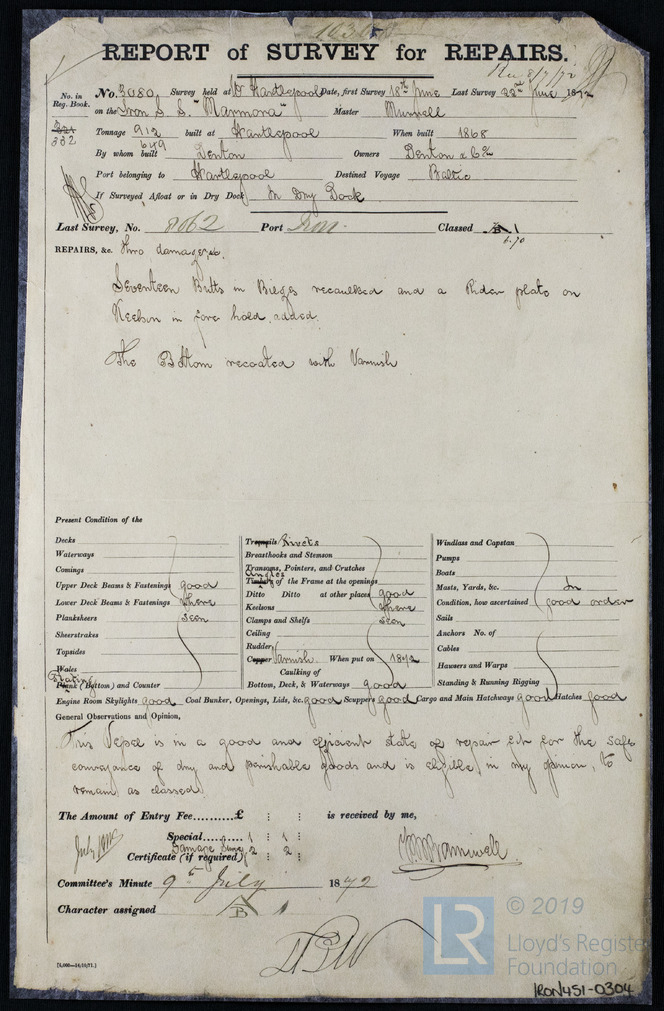 REPORT of SURVEY for REPAIRS.
Rec 8/7/72
No. in Reg. Book.
No. 3080. Survey held at W Hartlepool Date, first Survey 18th June Last Survey 22nd June 1872
on the Iron S.S. "Marmora" Master Murrell
332
Tonnage 912 built at Hartlepool When built 1868
649
By whom built Denton Owners Denton & Co
Port belonging to Hartlepool Destined Voyage Baltic
If Surveyed Afloat or in Dry Dock In Dry Dock
Last Survey, No. 8062 Port Classed 1
6.70
REPAIRS, &c. thro damage, &c.
Seventeen Butts in Bilges recaulked and a Rider plate on
Keelson in fore hold, added.
The Bottom recoated with Varnish
Present Condition of the
Decks
Waterways
Comings
Upper Deck Beams & Fastenings good
Lower Deck Beams & Fastenings where
Planksheers seen
Sheerstrakes
Topsides
Wales
Plating
Plank (Bottom) and Counter
Treenails Rivets
Breasthooks and Stemson
Transoms, Pointers, and Crutches
Angles
Timbers of the Frame at the openings
Ditto Ditto at other places good
Keelsons where
Clamps and Shelfs seen
Ceiling
Rudder
Copper Varnish. When put on 1872
Caulking of
Bottom, Deck, & Waterways good
Windlass and Capstan
Pumps
Boats
Masts, Yards, &c. In
Condition, how ascertained good order
Sails
Anchors No. of
Cables
Hawsers and Warps
Standing & Running Rigging
Engine Room Skylights good Coal Bunker, Openings, Lids, &c. good Scuppers good Cargo and Main Hatchways good Hatches good
General Observations and Opinion,
This Vessel is in a good and efficient state of repair fit for the safe
conveyance of dry and perishable goods and is eligible, in my opinion, to
remain as classed.
The Amount of Entry Fee..........£ : : is received by me,
Special......... 1 : 1 :
Damage Survey 2 : 2 :
Certificate (if required)
Committee's Minute 9th July 1872
Character assigned A 1
B
[5,000—16/10/71.]
LR
© 2019
Lloyd's Register
Foundation
IRON451-0304